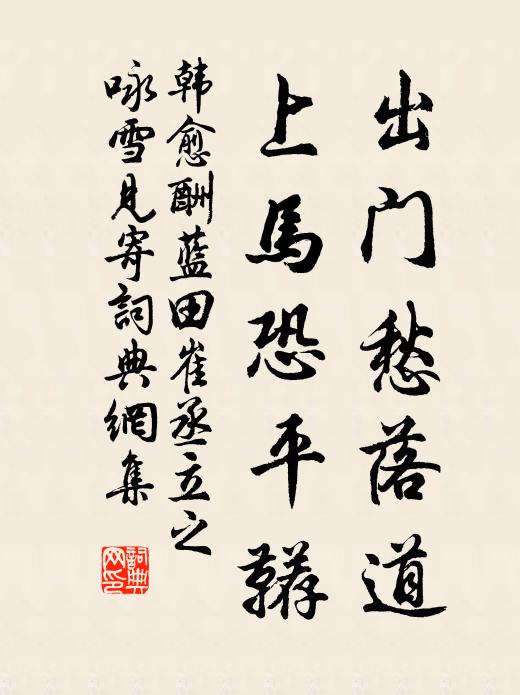 出门愁落道
上馬恐平鞯
韩愈酬藍田崔丞立之
咏雪見寄詞典網集
詞典
网印